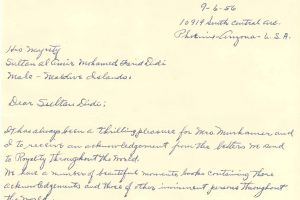 9-6-56
10919 South Central Ave.
Phoenix-Arizona-U.S.A.
His Majesty
Sultan al Amir Mohamed Farid Didi
Male - Maldive Islands.
Dear Sultan Didi:
It has always been a thrilling pleasure for Mrs
I to receive an acknowledgement from the letters we send
to Royalty Throughout the World.
We have a number of beautiful moments books containing these
acknowledgements and those of other imminent persons Throughout
the World.